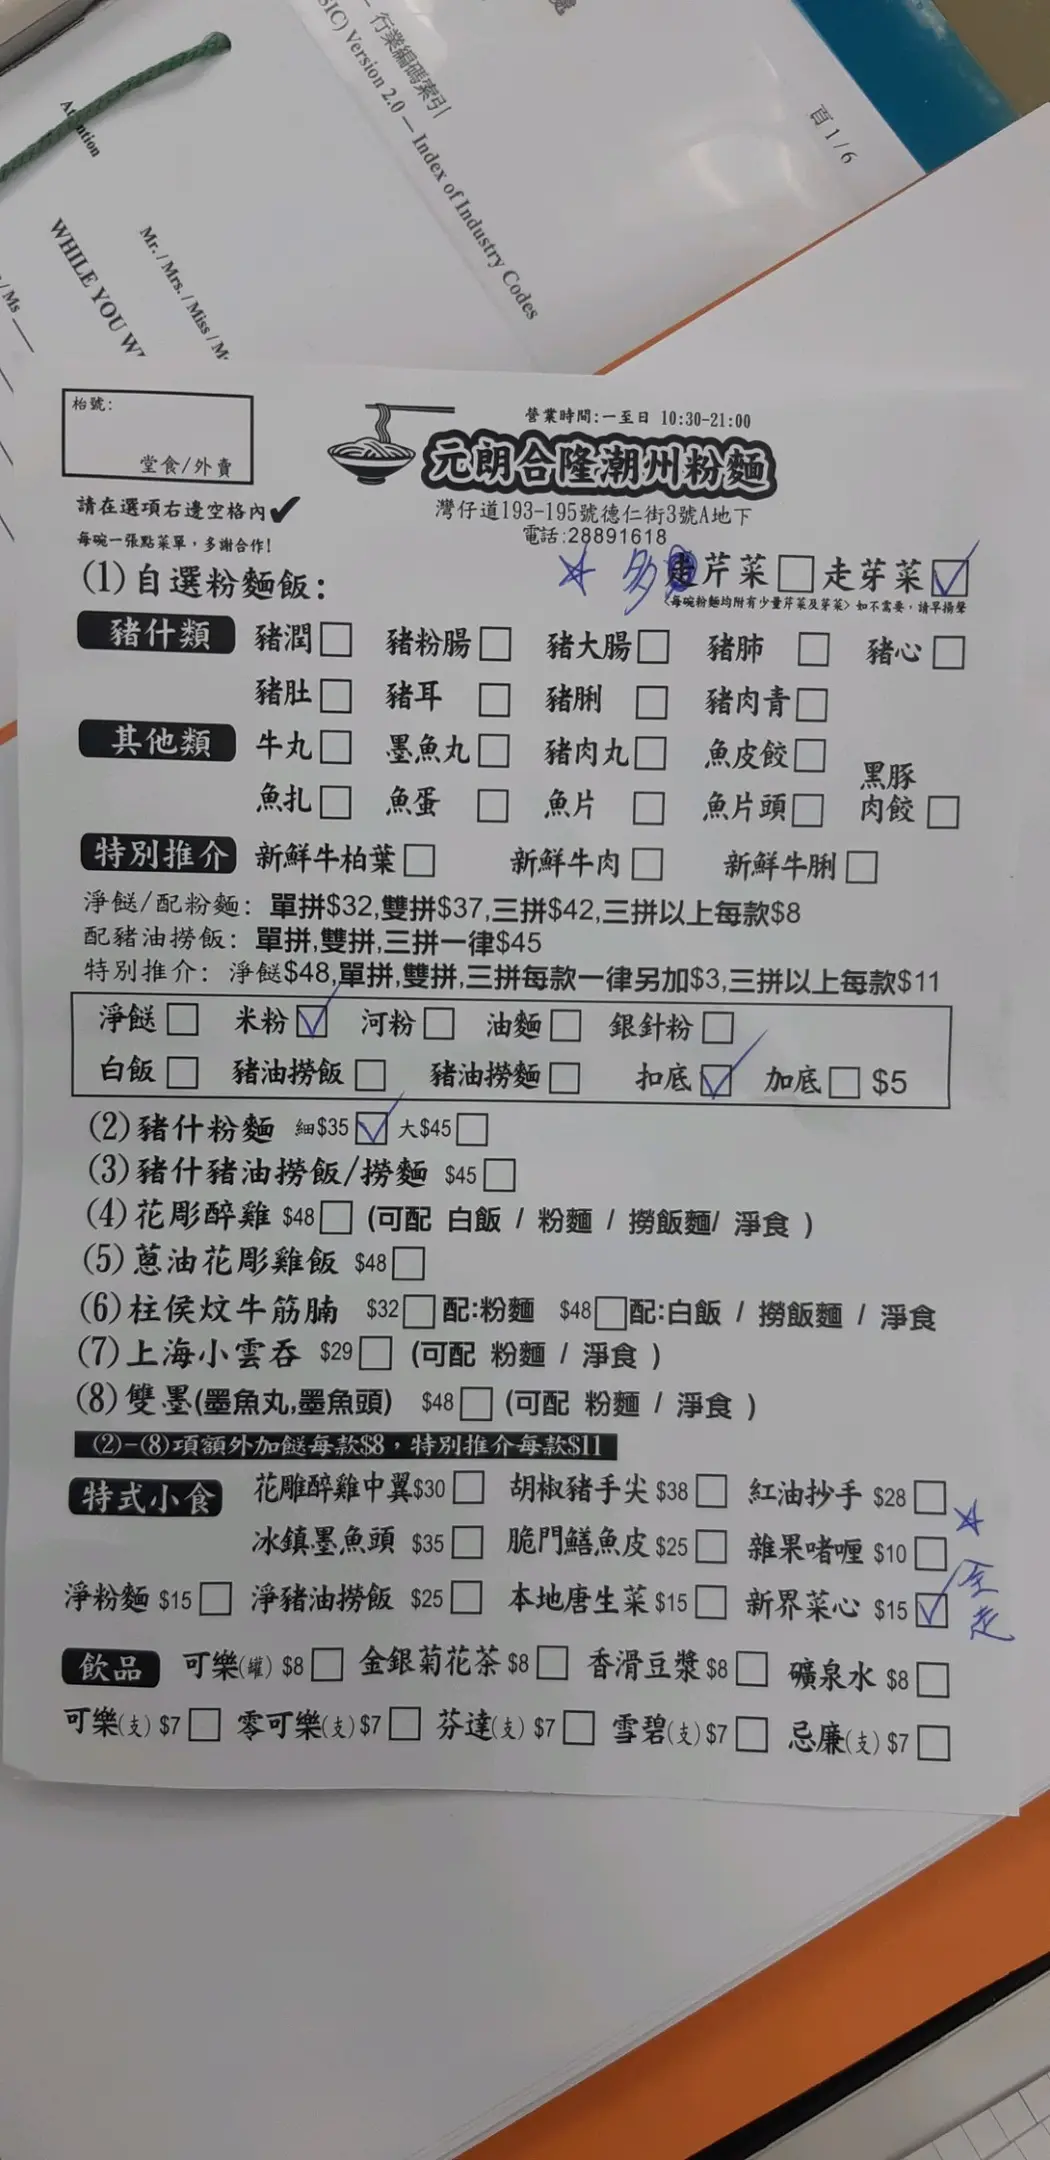 行業編碼索引
SIC) Version 2.0 — Index of Industry Codes
頁 1 / 6
Attention
Mr. / Mrs. / Miss / M
WHILE YOU W
/ Ms
枱號:
堂食/外賣
營業時間:一至日 10:30-21:00
元朗合隆潮州粉麵
灣仔道193-195號德仁街3號A地下
電話:28891618
請在選項右邊空格內✔
每碗一張點菜單，多謝合作!
(1)自選粉麵飯:
☆ 多走芹菜 走芽菜 ✓
<每碗粉麵均附有少量芹菜及芽菜> 如不需要，請早揚聲
豬什類 豬潤 豬粉腸 豬大腸 豬肺 豬心
豬肚 豬耳 豬脷 豬肉青
其他類 牛丸 墨魚丸 豬肉丸 魚皮餃 黑豚肉餃
魚扎 魚蛋 魚片 魚片頭
特別推介 新鮮牛柏葉 新鮮牛肉 新鮮牛脷
淨餸/配粉麵: 單拼$32,雙拼$37,三拼$42,三拼以上每款$8
配豬油撈飯: 單拼,雙拼,三拼一律$45
特別推介: 淨餸$48,單拼,雙拼,三拼每款一律另加$3,三拼以上每款$11
淨餸 米粉 ✓ 河粉 油麵 銀針粉
白飯 豬油撈飯 豬油撈麵 扣底 ✓ 加底 $5
(2)豬什粉麵 細$35 ✓ 大$45
(3)豬什豬油撈飯/撈麵 $45
(4)花彫醉雞 $48 (可配 白飯 / 粉麵 / 撈飯麵/ 淨食 )
(5)蔥油花彫雞飯 $48
(6)柱侯炆牛筋腩 $32 配:粉麵 $48 配:白飯 / 撈飯麵 / 淨食
(7)上海小雲吞 $29 (可配 粉麵 / 淨食 )
(8)雙墨(墨魚丸,墨魚頭) $48 (可配 粉麵 / 淨食 )
(2)-(8)項額外加餸每款$8，特別推介每款$11
特式小食 花雕醉雞中翼$30 胡椒豬手尖 $38 紅油抄手 $28
冰鎮墨魚頭 $35 脆門鱔魚皮 $25 雜果啫喱 $10 ☆
淨粉麵 $15 淨豬油撈飯 $25 本地唐生菜 $15 新界菜心 $15 ✓ 全走
飲品 可樂(罐) $8 金銀菊花茶 $8 香滑豆漿 $8 礦泉水 $8
可樂(支) $7 零可樂(支) $7 芬達(支) $7 雪碧(支) $7 忌廉(支) $7